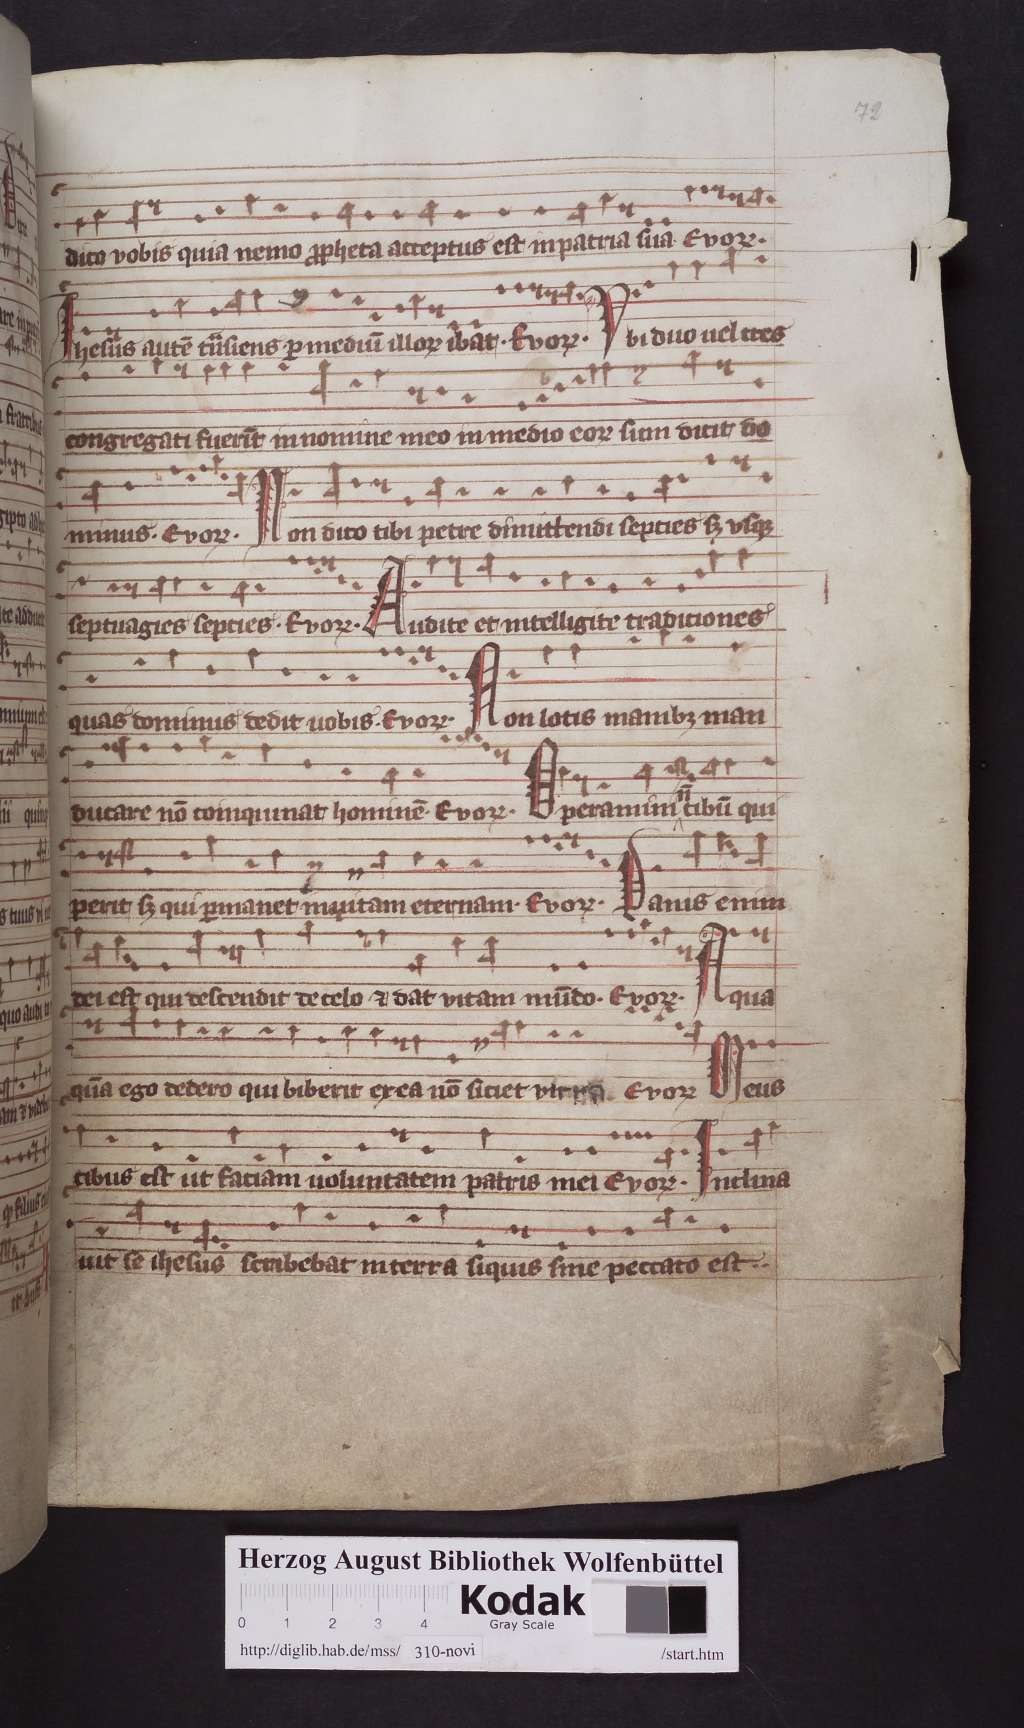 72
dico vobis quia nemo ꝓpheta acceptus est in patria sua Evoꝝ.
Ihesus autē tͣsiens ꝑ mediū illoꝝ ibat. Evoꝝ. Vbi duo uel tres
congregati fuerīt in nomine meo in medio eoꝝ sum dicit do
minus. Evoꝝ. Non dico tibi petre dimittendi septies sꝫ vsqꝫ
septuagies septies. Evoꝝ. Audite et intelligite traditiones
quas dominus dedit uobis. Evoꝝ. Non lotis manibꝫ man
ducare nō coinquinat hominē. Evoꝝ. Operamini cibū qui
perit sꝫ qui ꝑmanet in uitam eternam. Evoꝝ. Panis enim
dei est qui descendit de celo ⁊ dat vitam mūdo. Evoꝝ. Aqua
quā ego dedero qui biberit ex ea nō siciet Evoꝝ Meus
cibus est ut faciam uoluntatem patris mei Evoꝝ. Inclina
uit se ihesus scribebat in terra siquis sine peccato est.
Herzog August Bibliothek Wolfenbüttel
Kodak
Gray Scale
0 1 2 3 4
http://diglib.hab.de/mss/ 310-novi /start.htm